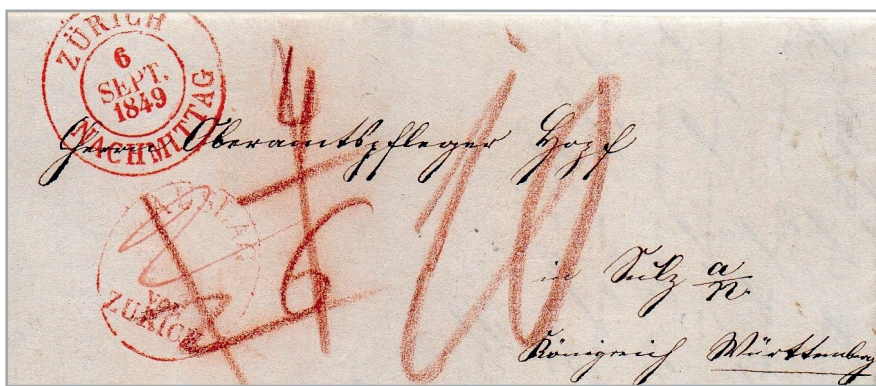 ZÜRICH
6
SEPT.
1849
NACHMITTAG
Herrn Oberamtspfleger Hopf
4
10
6
AUSLAGE
VON
ZÜRICH
in Sulz a/N.
Königreich Württemberg